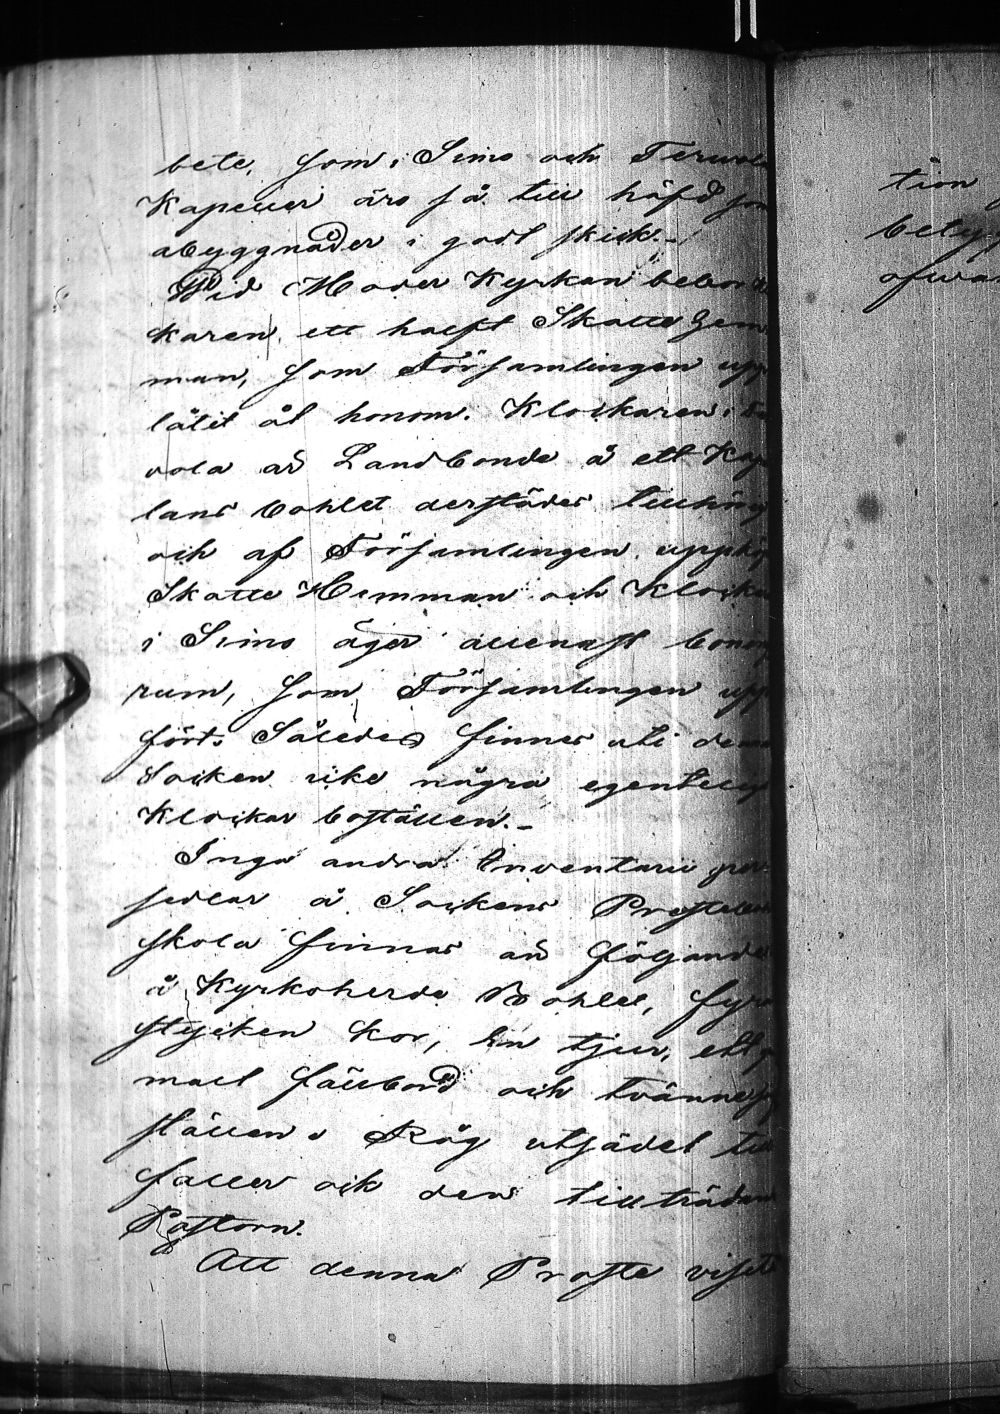 bete, som i Simo och Tervola
Kapeller äro så till häfd som
åbyggnader i godt skick.-
Wid Moder Kyrkan bebor
karen ett halft Skatte Hem
man, som Församlingen upp
låtit åt honom. Klockaren i
vola är Landbonde å ett Kap
lans bohlet derstädes tillhörig
och af Församlingen upphög
Skatte Hemman och Klocka
i Simo äger allenast bonings
rum, som Församlingen upp
fört. Således finnes uti denna
Socken icke några egentelig
Klockar boställen.-
Inga andra Inventarii per
sedlar å Sockens Preste
skola finnas än följande
å Kyrkoherde Bohlet, fyra
stycken kor, En tjur, ett g
malt fällbord och tvänne s
ställen. Råg utsädet till
faller ock den tillträdan
Pastorn.
Att denna Proste viset
tion
bely
ofwa